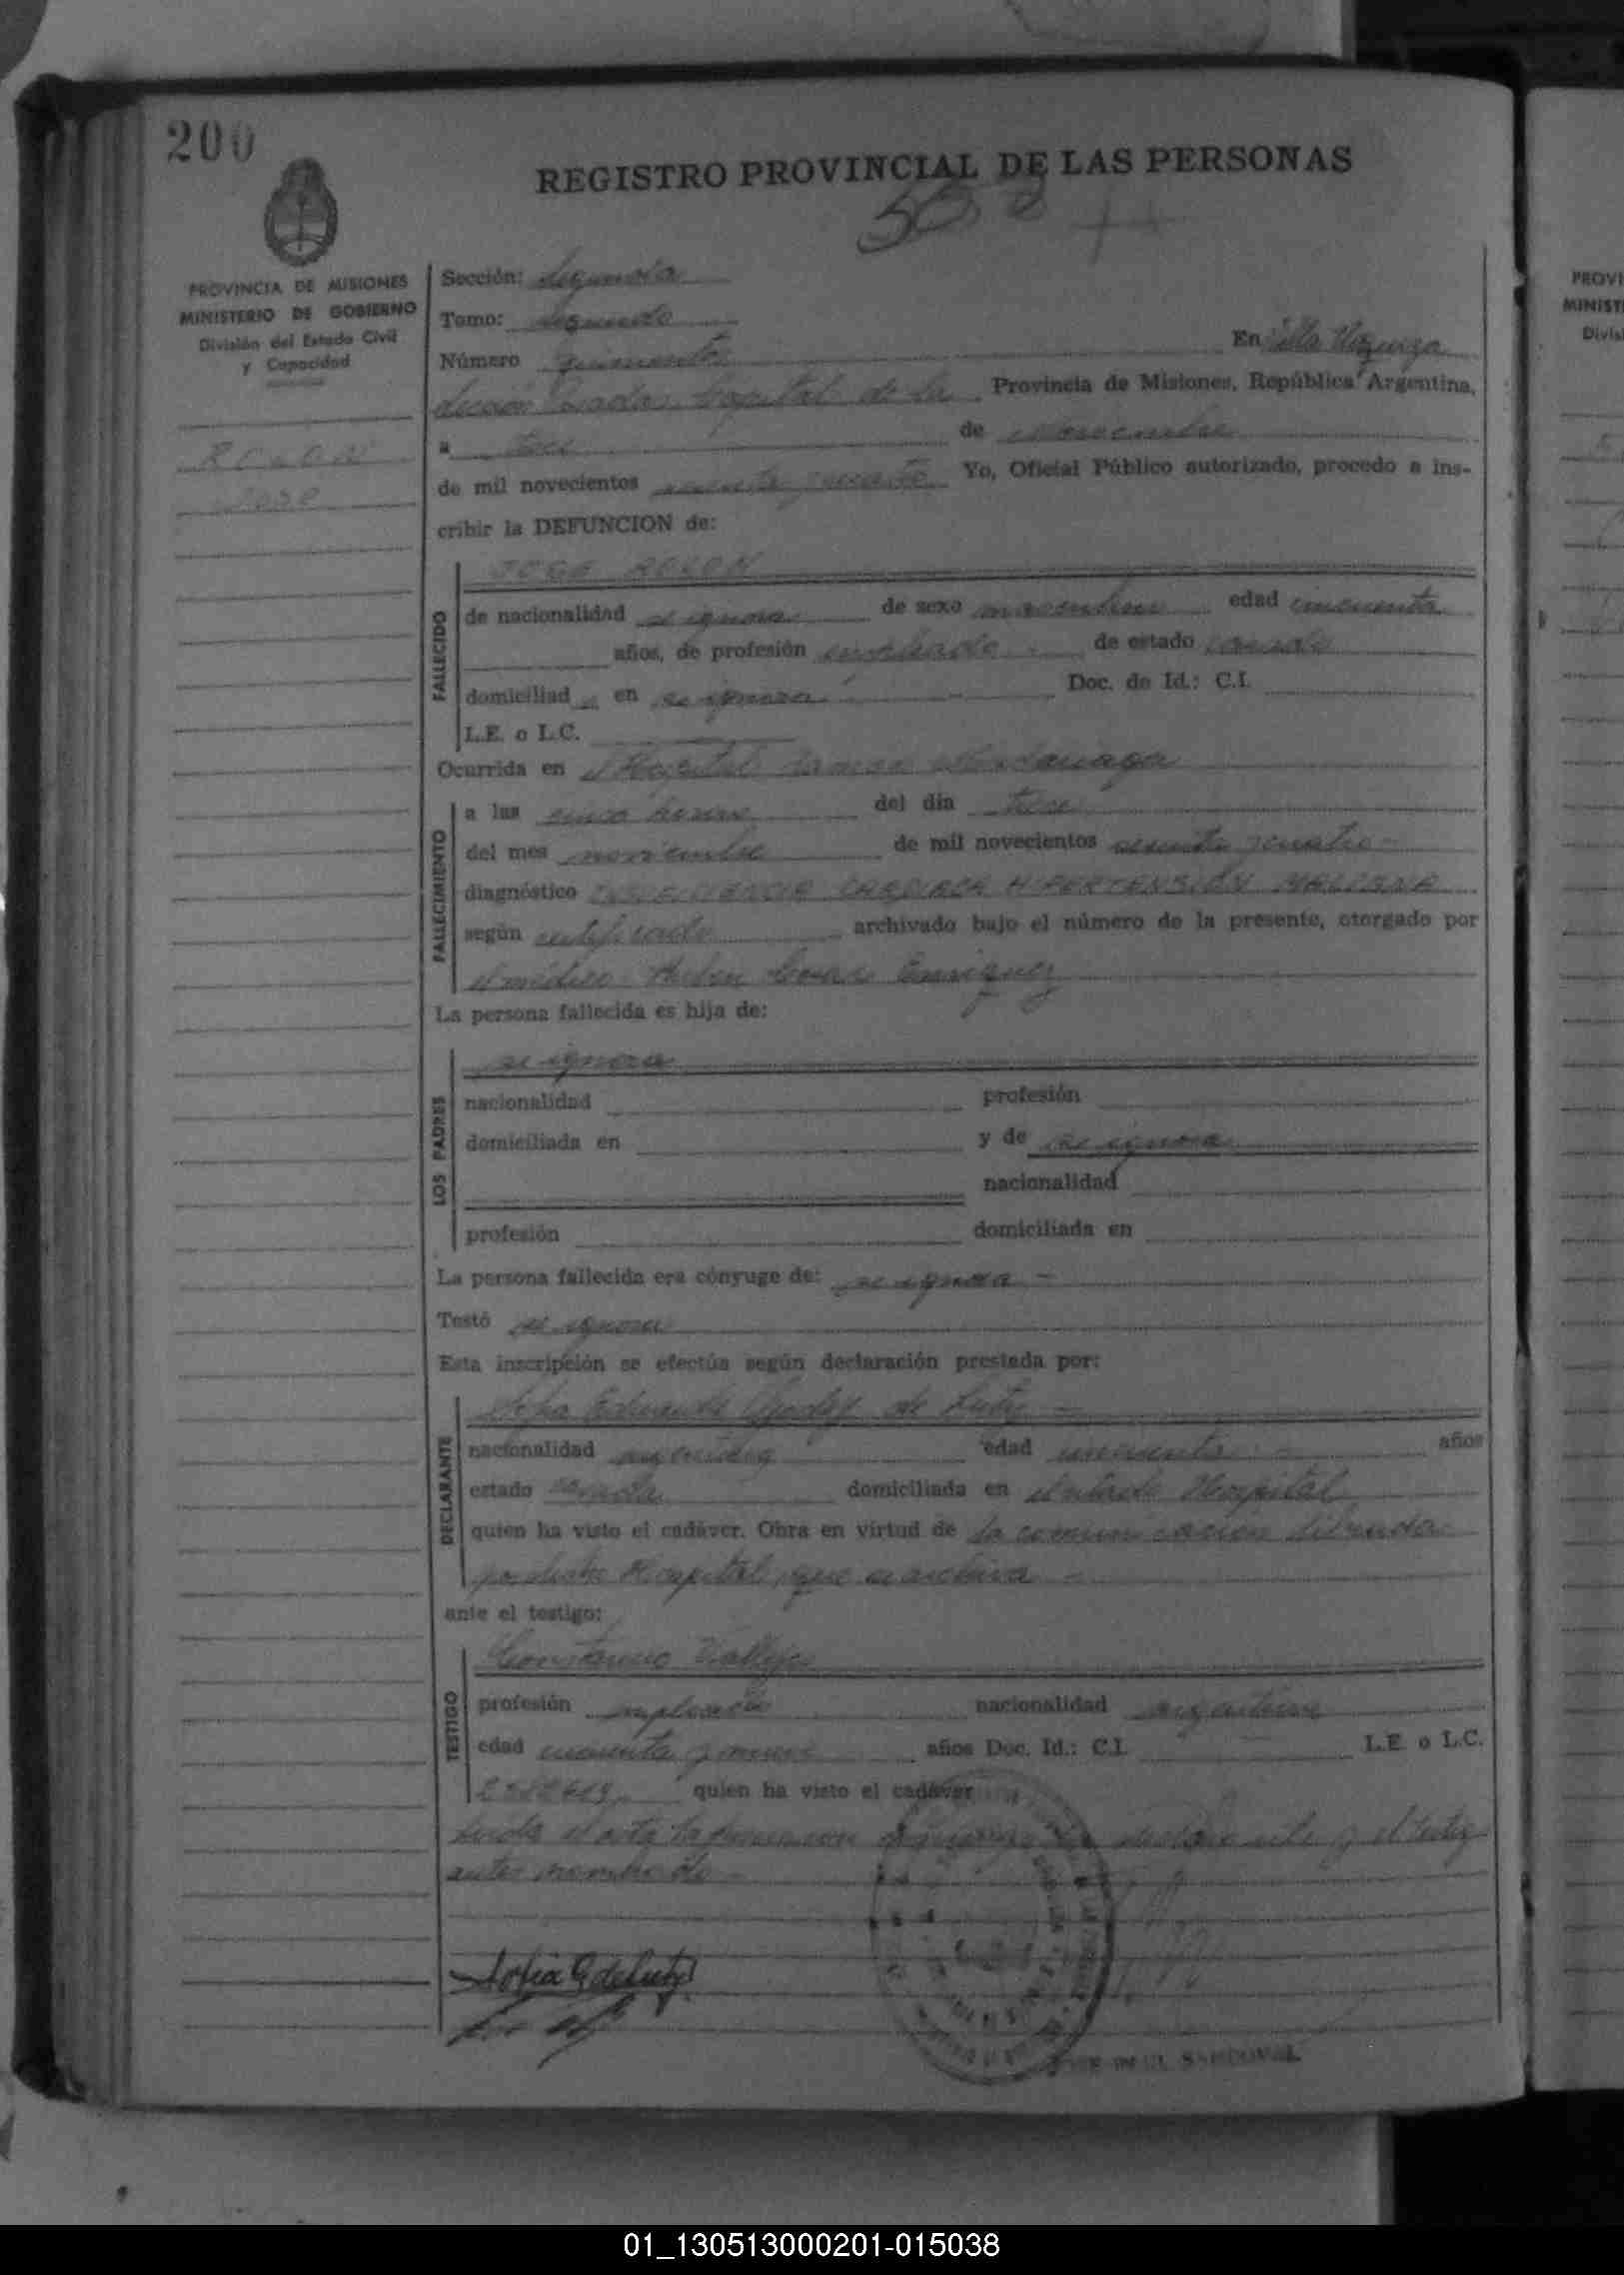 200
REGISTRO PROVINCIAL DE LAS PERSONAS
PROVINCIA DE MISIONES
MINISTERIO DE GOBIERNO
División del Estado Civil
y Capacidad
Sección: Segunda
Tomo: segundo
Número quinientos En Villa Urquiza
Sección Capital de la Provincia de Misiones, República Argentina,
a trece de noviembre
de mil novecientos sesenta y cuatro Yo, Oficial Público autorizado, procedo a ins-
cribir la DEFUNCION de:
ROLON
Jose
JOSE ROLON
FALLECIDO
de nacionalidad se ignora de sexo masculino edad cincuenta
años, de profesión empleado de estado casado
domiciliad o en se ignora Doc. de Id.: C.I.
L.E. o L.C.
Ocurrida en el Hospital Ramon Madariaga
FALLECIMIENTO
a las cinco horas del día trece
del mes noviembre de mil novecientos sesenta y cuatro
diagnóstico INSUFICIENCIA CARDIACA HIPERTENSIÓN MALIGNA
según certificado archivado bajo el número de la presente, otorgado por
el médico Ruben Cesar Enriquez
La persona fallecida es hija de:
LOS PADRES
se ignora
nacionalidad profesión
domiciliada en y de se ignora
nacionalidad
profesión domiciliada en
La persona fallecida era cónyuge de: se ignora
Testó se ignora
Esta inscripción se efectúa según declaración prestada por:
DECLARANTE
Sofia de
nacionalidad argentina edad cincuenta años
estado casada domiciliada en el citado Hospital
quien ha visto el cadáver. Obra en virtud de la comunicacion librada
por dicho Hospital, que se archiva
ante el testigo:
TESTIGO
Constancio Vallejos
profesión empleado nacionalidad argentino
edad cuarenta y nueve años Doc. Id.: C.I. L.E. o L.C.
quien ha visto el cadáver
Leida el acta la firman con el declarante y el testigo
antes nombrado
Sofia G de
SANDOVAL
PROVI
MINIST
Divis
01_130513000201-015038